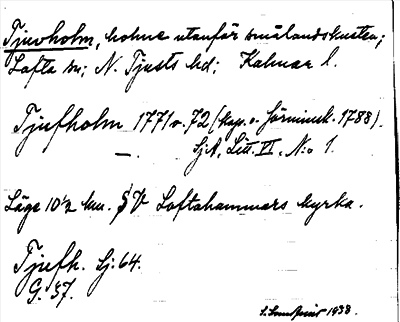 Tjuvholm, holme utanför smålandskusten;
Lofta sn; N. Tjusts hd; Kalmar l.
Tjufholm 1771 o. 72 (Kap. o. Hörninck. 1788).
— . SjA, Litt. VI, N:o 1.
Läge 10½ km. SV Loftahammars kyrka.
Tjufh. Sj: 64.
G. 37.
1938.